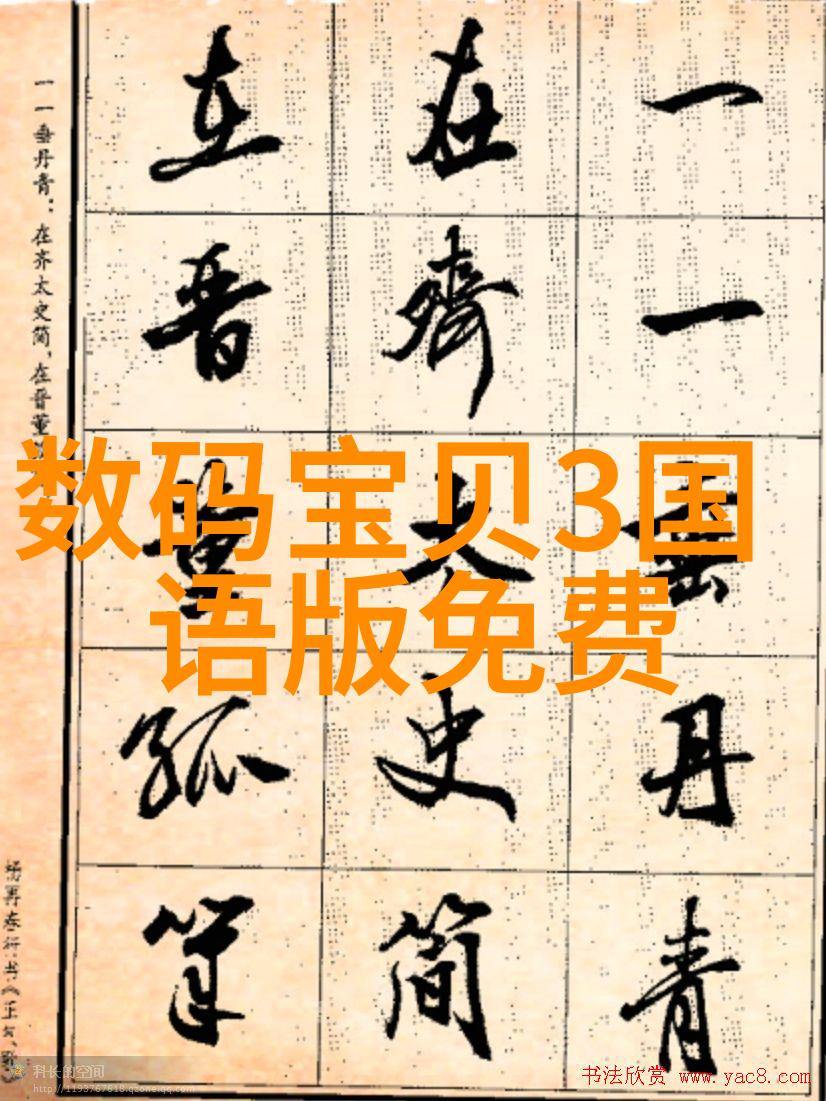 一一垂丹青
在齊太史简
在晋董狐筆
一一垂丹青：在齐太史简，在晋董
杨再春行书《正气歌》
数码宝贝3国
语版免费
科长的空间
http://1193767618.qzone.qq.com
书法欣赏 www.yac8.com